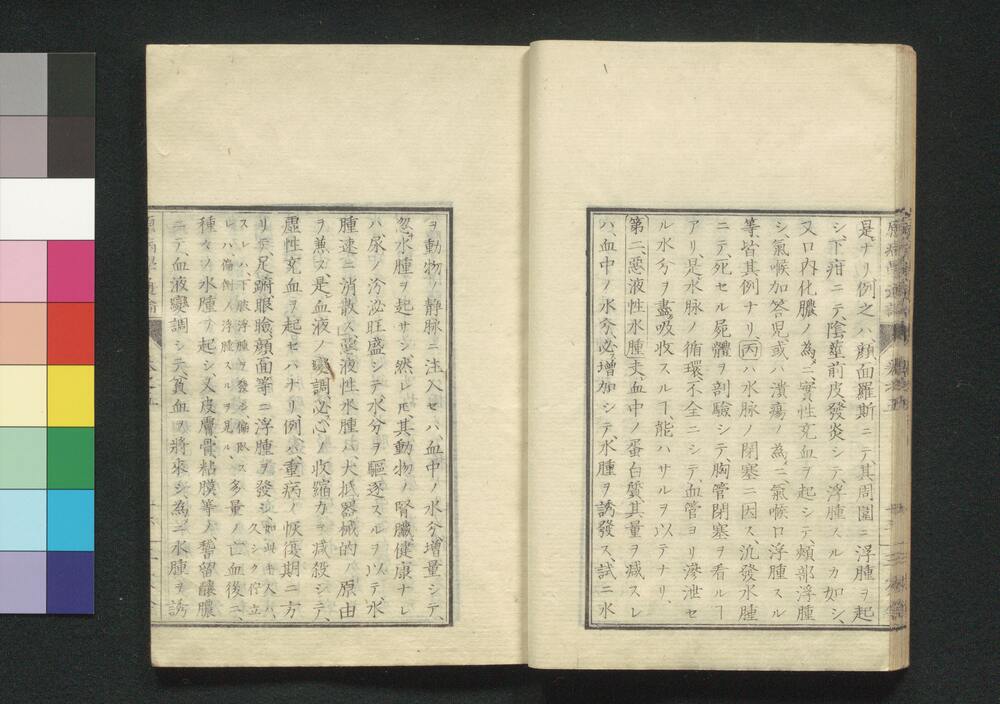 是ナリ例之ハ顔面羅斯ニテ其周圍ニ浮腫ヲ起
シ、下疳ニテ、陰莖前皮發炎シテ、浮腫スルカ如シ、
又口内化膿ノ為ニ、實性充血ヲ起シテ、頬部浮腫
シ、氣喉加答児、或ハ潰瘍ノ為ニ、氣喉口浮腫スル
等皆其例ナリ、丙ハ水脉ノ閉塞ニ因ス、汎發水腫
ニテ、死セル屍體ヲ剖驗シテ、胸管閉塞ヲ看ルヿ
アリ、是水脉ノ循環不全ニシテ、血管ヨリ滲泄セ
ル水分ヲ盡ク吸收スルヿ能ハサルヲ以テナリ、
第二、惡液性水腫夫血中ノ蛋白質其量ヲ減スレ
ハ、血中ノ水分必増加シテ、水腫ヲ誘發ス、試ニ水
ヲ動物ノ静脉ニ注入セハ、血中ノ水分増量シテ、
忽水腫ヲ起サン然レ𪜈其動物ノ腎臟健康ナレ
ハ、尿ノ泌旺盛シテ、水分ヲ驅逐スルヲ以テ、水
腫速ニ消散ス、惡液性水腫ハ、大抵器械的ノ原由
ヲ兼ス、是血液ノ變調必心ノ收縮力ヲ減殺シテ、
虚性充血ヲ起セハナリ、例之重病ノ恢復期ニ方
リテ、足跗眼瞼、顔面等ニ浮腫ヲ發シ如此キ人ハ、久シク佇立
スレハ、下肢浮腫ヲ發シ、偏臥スレハ、偏側ノ浮腫スルヲ見ル、多量ノ亡血後ニ、
種々ノ水腫ヲ起シ、又皮膚骨粘膜等ノ稽留釀膿
ニテ、血液變調シテ、貧血ヲ將來シ、為ニ水腫ヲ誘